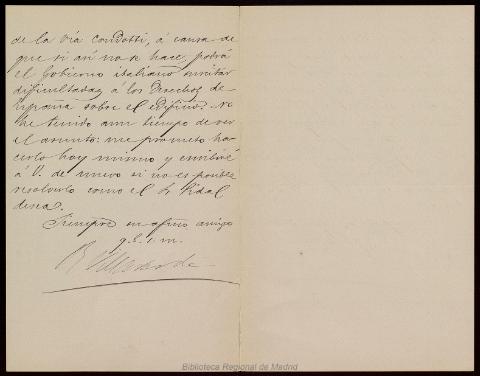 de la vía Condotti, á causa de
que si asi no se hace, podrá
el Gobierno italiano suscitar
dificultades á los Derechos de
España sobre el edificio. No
he tenido aun tiempo de ver
el asunto: me prometo ha-
cerlo hoy mismo y escribiré
á V. de nuevo si no es posible
resolverlo como el Sr Vidal
desea.
Siempre su afmo amigo
q. b. s. m.
Biblioteca Regional de Madrid